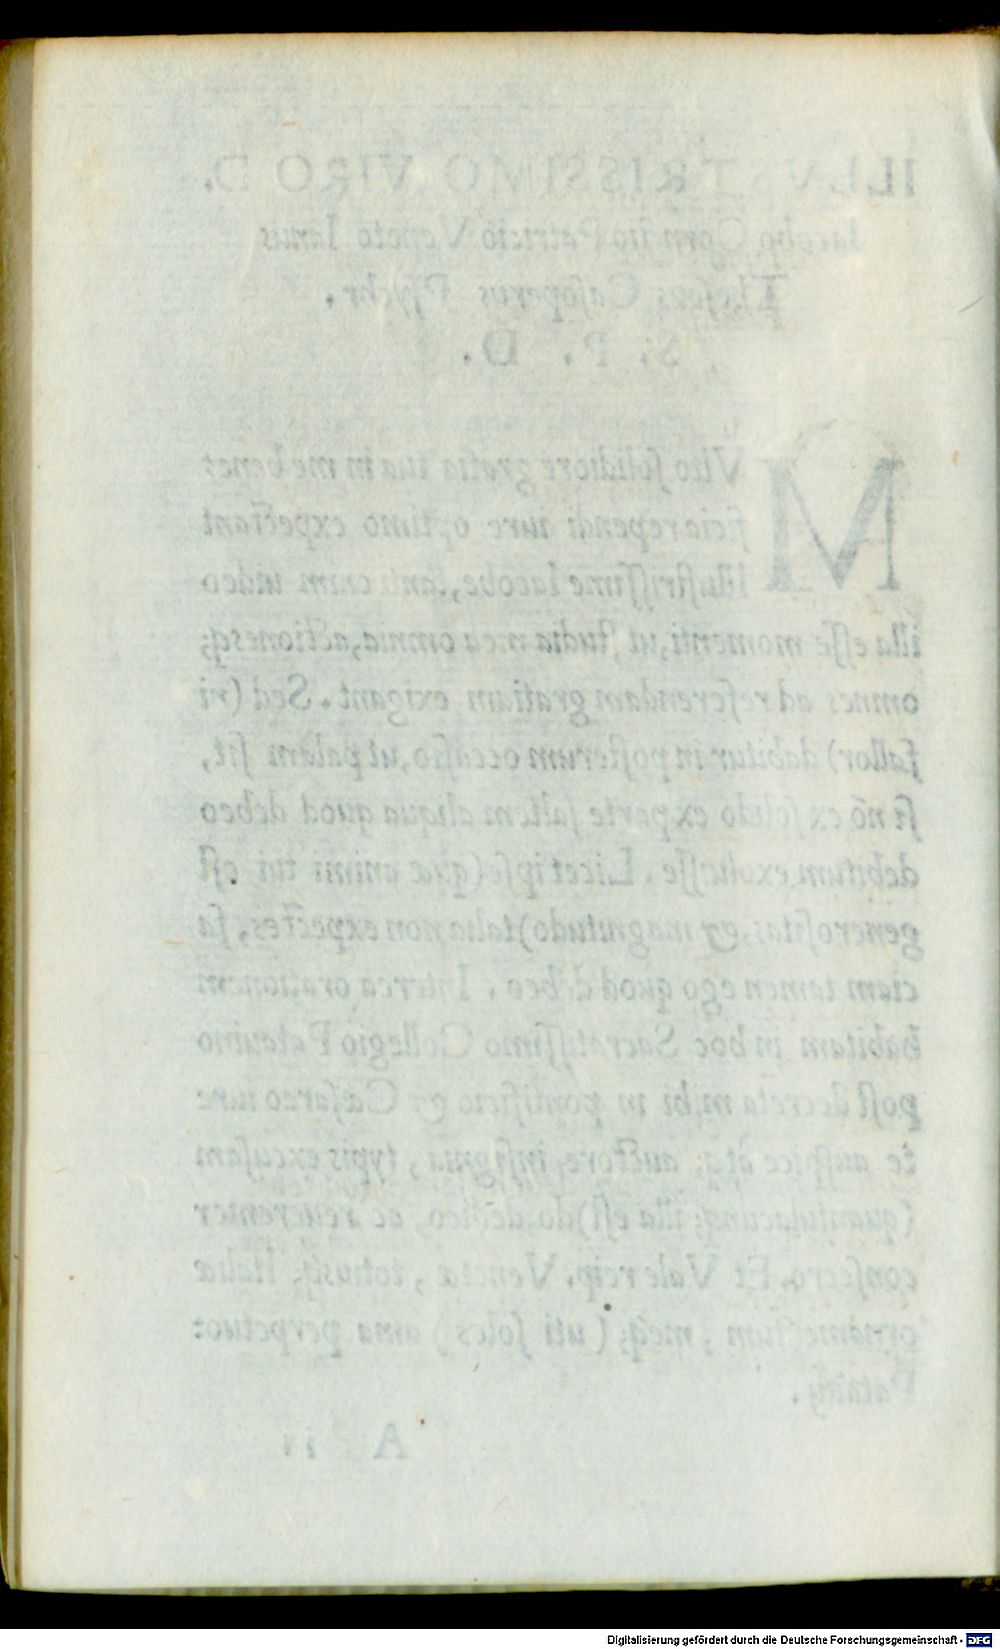 ILLVSTRISSIMO VIRO D.
Iacobo Cornelio Patricio Veneto Ianus
Casoperus Psychr.
S. P. D.
MVlto solidiore gratia tua in me bene=
ficia rependi iure optimo expectant
Illustrissime Iacobe, tanti enim uideo
illa esse momenti, ut studia mea omnia, actionesq;
omnes ad referendam gratiam exigant. Sed (ni
fallor) dabitur in posterum occasio, ut palam sit,
si nō ex solido ex parte saltem aliqua quod debeo
debitum exoluisse. Licet ipse (quæ animi tui est
generositas, & magnitudo) talia non expectes, fa
ciam tamen ego quod debeo. Interea orationem
habitam in hoc Sacratissimo Collegio Patauino
post decreta mihi in pontificio & Cæsareo iure
te auspice atq; auctore, insignia, typis excusam
(quantulacunq; illa est) do, dedico, ac reuerenter
consecro. Et Vale reip. Venetæ, totiusq; Italiæ
ornamentum, meq; (uti soles) ama perpetuo:
Patauij.
A ii
Digitalisierung gefördert durch die Deutsche Forschungsgemeinschaft - DFG